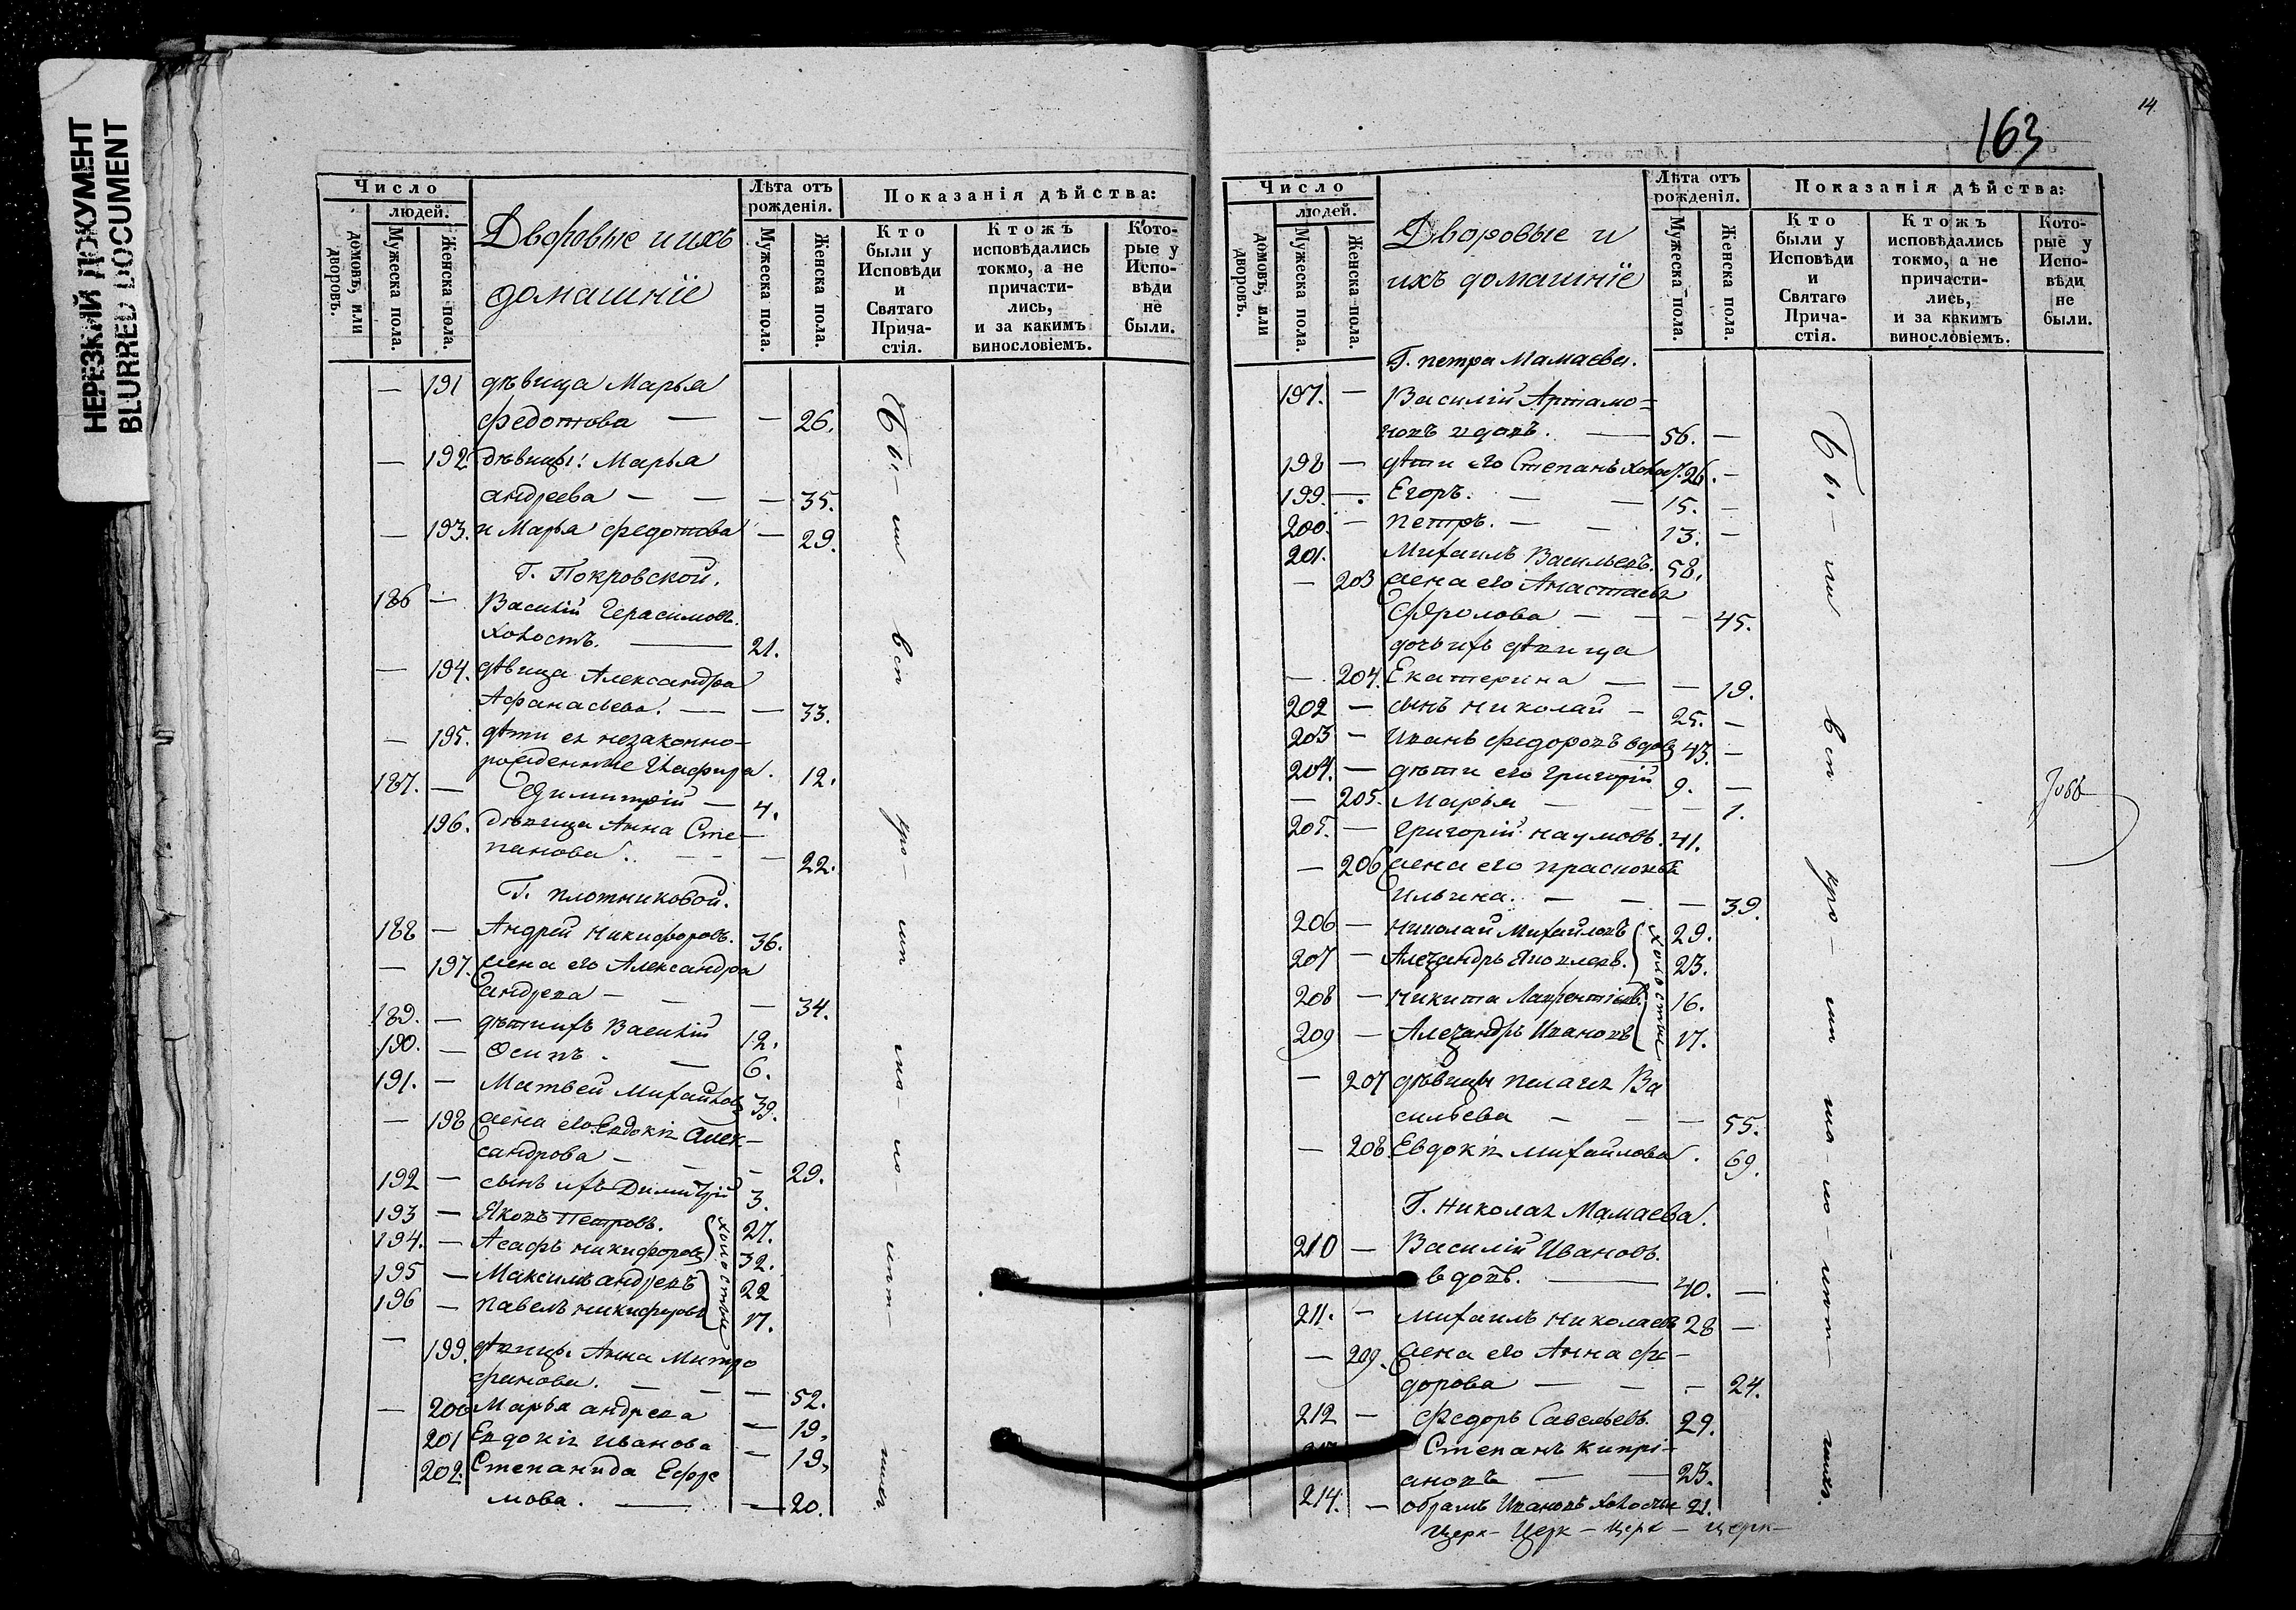 НЕРЕЗКИЙ ДОКУМЕНТ
BLURRED DOCUMENT
Число
людей.
домовъ, или дворовъ.
Мужеска пола.
Женска пола.
Дворовые и ихъ
домашніе
Лѣта отъ рожденія.
Мужеска пола.
Женска пола.
Показанія дѣйства:
Кто были у Исповѣди и Святаго Прича-стія.
Ктожъ исповѣдались токмо, а не причасти-лись, и за какимъ винословіемъ.
Кото-рые у Испо-вѣди не были.
— 191 дѣвица Марья
Федотова — — 26.
— 192 дѣвицы: Марья
андреева — — — 35.
— 193. и Марья федотова — 29.
Г. Покровской.
186 — Василій Герасимовъ.
холостъ. — 21.
— 194. дѣвица Александра
Афанасьева. — — 33.
— 195. дѣти ея незаконно-
рожденные Глафира. 12.
187. — Димитрій — 4.
196. дѣвица Анна Сте-
панова. — — — 22.
Г. плотниковой.
188 — Андрей никифоровъ. 36.
— 197. жена его Александра
андреева — — — 34.
189. — дѣти ихъ Василій 12.
190. — Осипъ. — 6.
191. — Матвей Михайловъ 39.
— 198 жена его Евдокія Алек-
сандрова — — — 29.
192 — сынъ ихъ Димитрій 3.
193 — Яковъ Петровъ. 27.
194. — Асафъ никифоровъ 32.
195 — Максимъ андреевъ 22
196 — павелъ никифоровъ 17.
холостые
— 199. дѣвицы Анна Митро
фанова. — — — 52.
— 200 Марья андреева — 19.
201 Евдокія иванова — 19.
202. Степанида Ефре
мова. — — 20.
Бы-ли всп
163
14.
Число
людей.
домовъ, или дворовъ.
Мужеска пола.
Женска пола.
Дворовые и
ихъ домашніе
Лѣта отъ рожденія.
Мужеска пола.
Женска пола.
Показанія дѣйства:
Кто были у Исповѣди и Святаго Прича-стія.
Ктожъ исповѣдались токмо, а не причасти-лись, и за какимъ винословіемъ.
Кото-рые у Испо-вѣди не были.
Г. петра Мамаева.
197. — Василій Артамо=
новъ вдовъ. — 56. —
198 — дѣти его Степанъ холос. 26. —
199 — Егоръ. — — 15. —
200. — петръ. — — 13. —
201. Михаилъ Васильевъ. 58.
— 203 жена его Анастасья
Фролова — — — 45.
дочь ихъ дѣвица
— 204. Екатерина — — 19.
202 — сынъ николай — 25. —
203 — Иванъ федоровъ вдовъ 43. —
204. — дѣти его григорій 9. —
— 205. Марья — — — 1.
205. — григорій наумовъ. 41.
— 206 жена его прасковья
Ильина. — — — 39.
206 — николай Михайловъ 29.
207 — Александръ Яковлевъ. 23.
208 — никита Лаврентіевъ. 16.
209 — Александръ Ивановъ 17.
холостые
— 207 дѣвицы пелагія Ва
сильева — — — 55.
— 208 Евдокія михайлова. 69.
Г. Николая Мамаева.
210 — Василій Ивановъ.
вдовъ. — 40. —
211. — михаилъ николаевъ 28 —
— 209. жена его Анна фе-
дорова — — — 24.
212 — федоръ Савельевъ. 29.
Степанъ кипрі-
ановъ — — 23.
214. — абрамъ Ивановъ холостые 21.
Церк- Церк - церк - церк-
Бы-ли всп